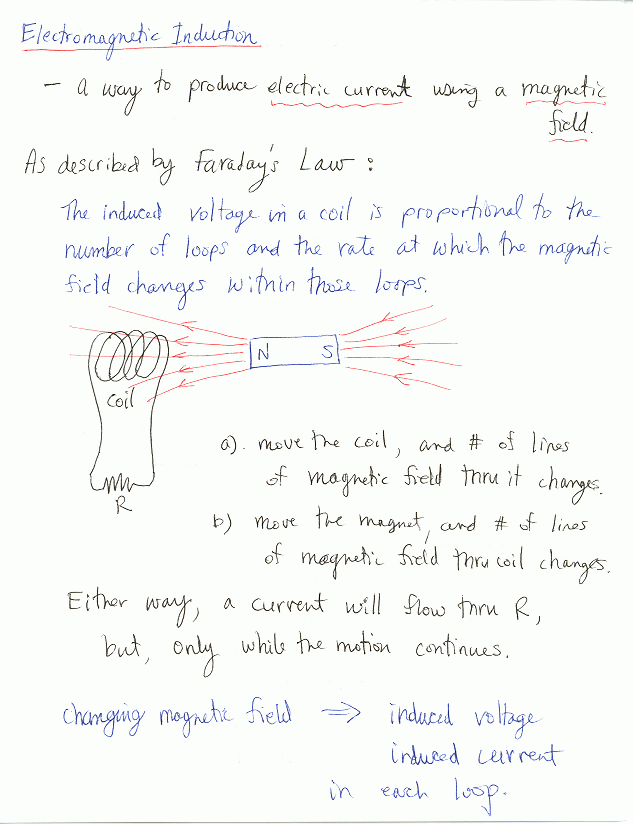 Electromagnetic Induction
- a way to produce electric current using a magnetic
field.
As described by Faraday's Law :
The induced voltage in a coil is proportional to the
number of loops and the rate at which the magnetic
field changes within those loops.
N S
coil
R
a). move the coil, and # of lines
of magnetic field thru it changes.
b) move the magnet, and # of lines
of magnetic field thru coil changes.
Either way, a current will flow thru R,
but, only while the motion continues.
changing magnetic field ⇒ induced voltage
induced current
in each loop.